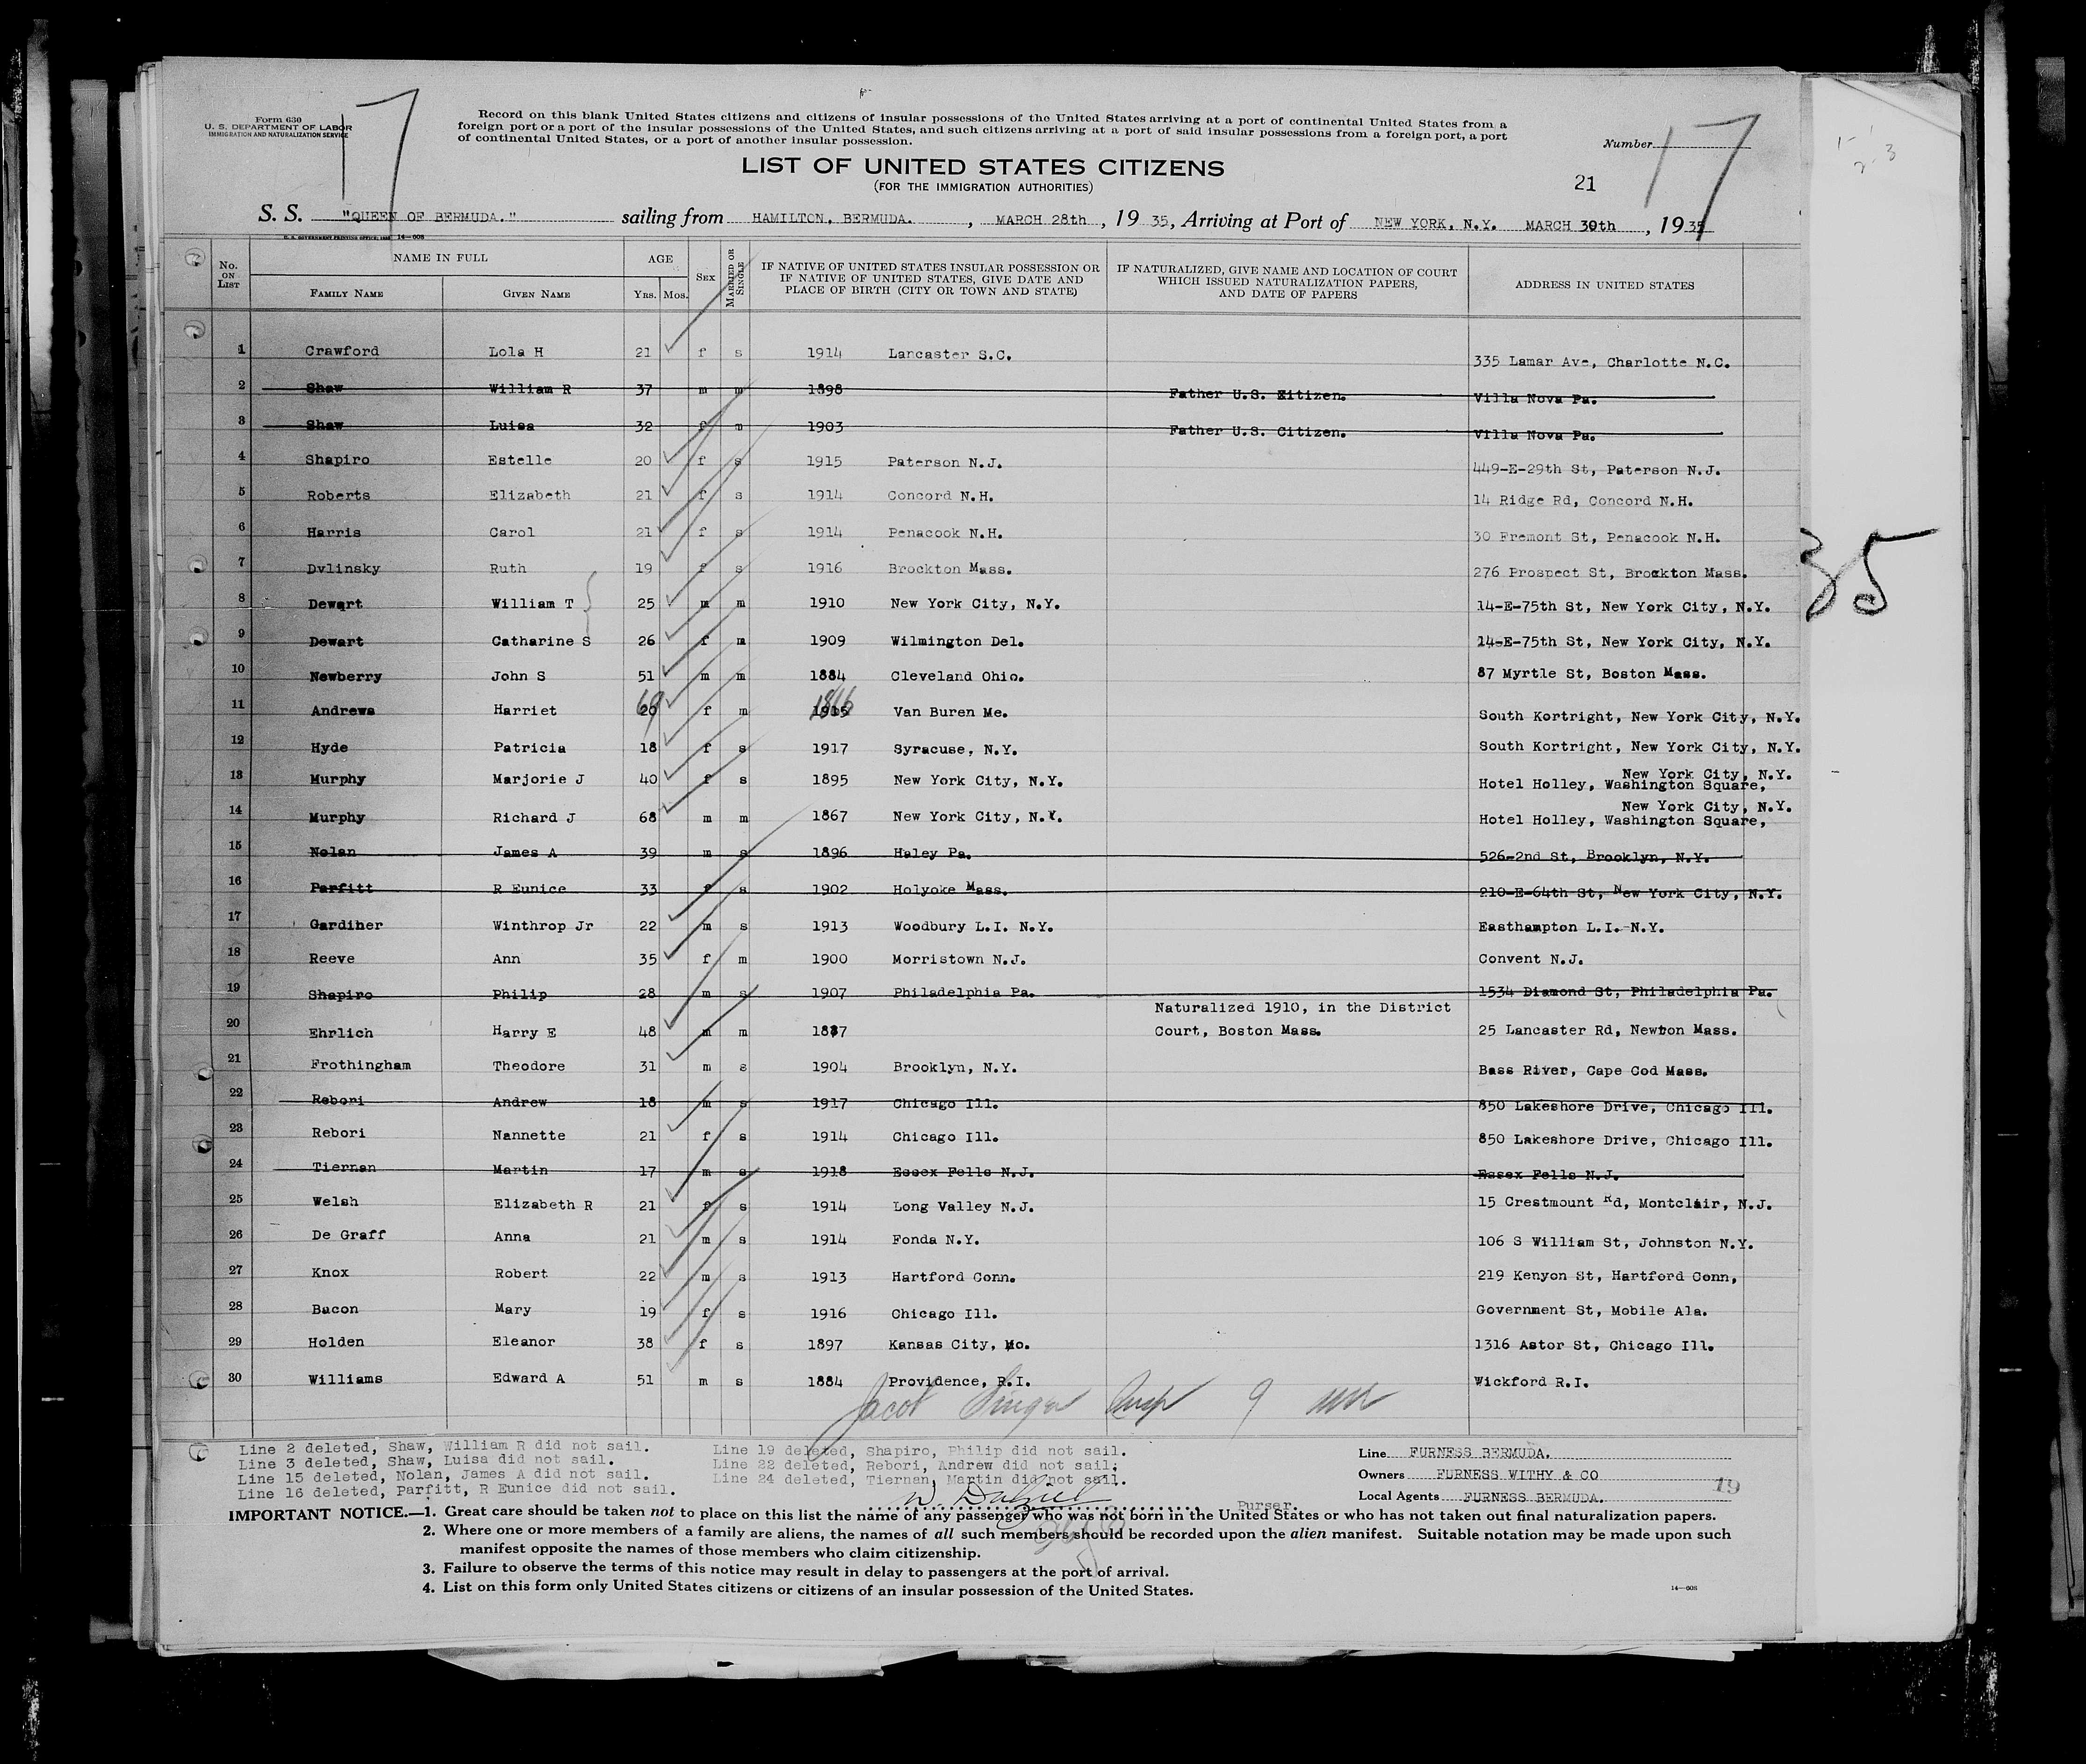 Form 630
U. S. DEPARTMENT OF LABOR
IMMIGRATION AND NATURALIZATION SERVICE
17
Record on this blank United States citizens and citizens of insular possessions of the United States arriving at a port of continental United States from a
foreign port or a port of the insular possessions of the United States, and such citizens arriving at a port of said insular possessions from a foreign port, a port
of continental United States, or a port of another insular possession.
Number 17
LIST OF UNITED STATES CITIZENS
(FOR THE IMMIGRATION AUTHORITIES)
21
S. S. "QUEEN OF BERMUDA." sailing from HAMILTON. BERMUDA. , MARCH 28th , 19 35, Arriving at Port of NEW YORK, N.Y. MARCH 30th , 19 35
No. ON LIST NAME IN FULL FAMILY NAME GIVEN NAME AGE YRS. MOS. SEX MARRIED OR SINGLE IF NATIVE OF UNITED STATES INSULAR POSSESSION OR IF NATIVE OF UNITED STATES, GIVE DATE AND PLACE OF BIRTH (CITY OR TOWN AND STATE) IF NATURALIZED, GIVE NAME AND LOCATION OF COURT WHICH ISSUED NATURALIZATION PAPERS, AND DATE OF PAPERS ADDRESS IN UNITED STATES
1 Crawford Lola H 21 f s 1914 Lancaster S.C. 335 Lamar Ave, Charlotte N.C.
2 Shaw William R 37 m m 1898 Father U.S. Eitizen. Villa Nova Pa.
3 Shaw Luisa 32 f m 1903 Father U.S. Citizen. Villa Nova Pa.
4 Shapiro Estelle 20 f s 1915 Paterson N.J. 449-E-29th St, Paterson N.J.
5 Roberts Elizabeth 21 f s 1914 Concord N.H. 14 Ridge Rd, Concord N.H.
6 Harris Carol 21 f s 1914 Penacook N.H. 30 Fremont St, Penacook N.H.
7 Dvlinsky Ruth 19 f s 1916 Brockton Mass. 276 Prospect St, Brockton Mass.
8 Dewart William T 25 m m 1910 New York City, N.Y. 14-E-75th St, New York City, N.Y.
9 Dewart Catharine S 26 f m 1909 Wilmington Del. 14-E-75th St, New York City, N.Y.
10 Newberry John S 51 m m 1884 Cleveland Ohio. 87 Myrtle St, Boston Mass.
11 Andrews Harriet 20 69 f m 1915 1866 Van Buren Me. South Kortright, New York City, N.Y.
12 Hyde Patricia 18 f s 1917 Syracuse, N.Y. South Kortright, New York City, N.Y.
New York City, N.Y.
13 Murphy Marjorie J 40 f s 1895 New York City, N.Y. Hotel Holley, Washington Square,
New York City, N.Y.
14 Murphy Richard J 68 m m 1867 New York City, N.Y. Hotel Holley, Washington Square,
15 Nolan James A 39 m s 1896 Haley Pa. 526-2nd St, Brooklyn, N.Y.
16 Parfitt R Eunice 33 f s 1902 Holyoke Mass. 210-E-64th St, New York City, N.Y.
17 Gardiner Winthrop Jr 22 m s 1913 Woodbury L.I. N.Y. Easthampton L.I.-N.Y.
18 Reeve Ann 35 f m 1900 Morristown N.J. Convent N.J.
19 Shapiro Philip 28 m s 1907 Philadelphia Pa. 1534 Diamond St, Philadelphia Pa.
Naturalized 1910, in the District
20 Ehrlich Harry E 48 m m 1887 Court, Boston Mass. 25 Lancaster Rd, Newton Mass.
21 Frothingham Theodore 31 m s 1904 Brooklyn, N.Y. Bass River, Cape Cod Mass.
22 Rebori Andrew 18 m s 1917 Chicago Ill. 850 Lakeshore Drive, Chicago Ill.
23 Rebori Nannette 21 f s 1914 Chicago Ill. 850 Lakeshore Drive, Chicago Ill.
24 Tiernan Martin 17 m s 1918 Essex Fells N.J. Essex Fells N.J.
25 Welsh Elizabeth R 21 f s 1914 Long Valley N.J. 15 Crestmount Rd, Montclair, N.J.
26 De Graff Anna 21 m s 1914 Fonda N.Y. 106 S William St, Johnston N.Y.
27 Knox Robert 22 m s 1913 Hartford Conn. 219 Kenyon St, Hartford Conn,
28 Bacon Mary 19 f s 1916 Chicago Ill. Government St, Mobile Ala.
29 Holden Eleanor 38 f s 1897 Kansas City, Mo. 1316 Astor St, Chicago Ill.
30 Williams Edward A 51 m s 1884 Providence, R.I. Wickford R.I.
35
Jacob Singer Insp 9
Line 2 deleted, Shaw, William R did not sail.
Line 3 deleted, Shaw, Luisa did not sail.
Line 15 deleted, Nolan, James A did not sail.
Line 16 deleted, Parfitt, R Eunice did not sail.
Line 19 deleted, Shapiro, Philip did not sail.
Line 22 deleted, Rebori, Andrew did not sail.
Line 24 deleted, Tiernan, Martin did not sail.
Purser.
Line FURNESS BERMUDA.
Owners FURNESS WITHY & CO
Local Agents FURNESS BERMUDA.
19
IMPORTANT NOTICE.—1. Great care should be taken not to place on this list the name of any passenger who was not born in the United States or who has not taken out final naturalization papers.
2. Where one or more members of a family are aliens, the names of all such members should be recorded upon the alien manifest. Suitable notation may be made upon such
manifest opposite the names of those members who claim citizenship.
3. Failure to observe the terms of this notice may result in delay to passengers at the port of arrival.
4. List on this form only United States citizens or citizens of an insular possession of the United States.
14—608